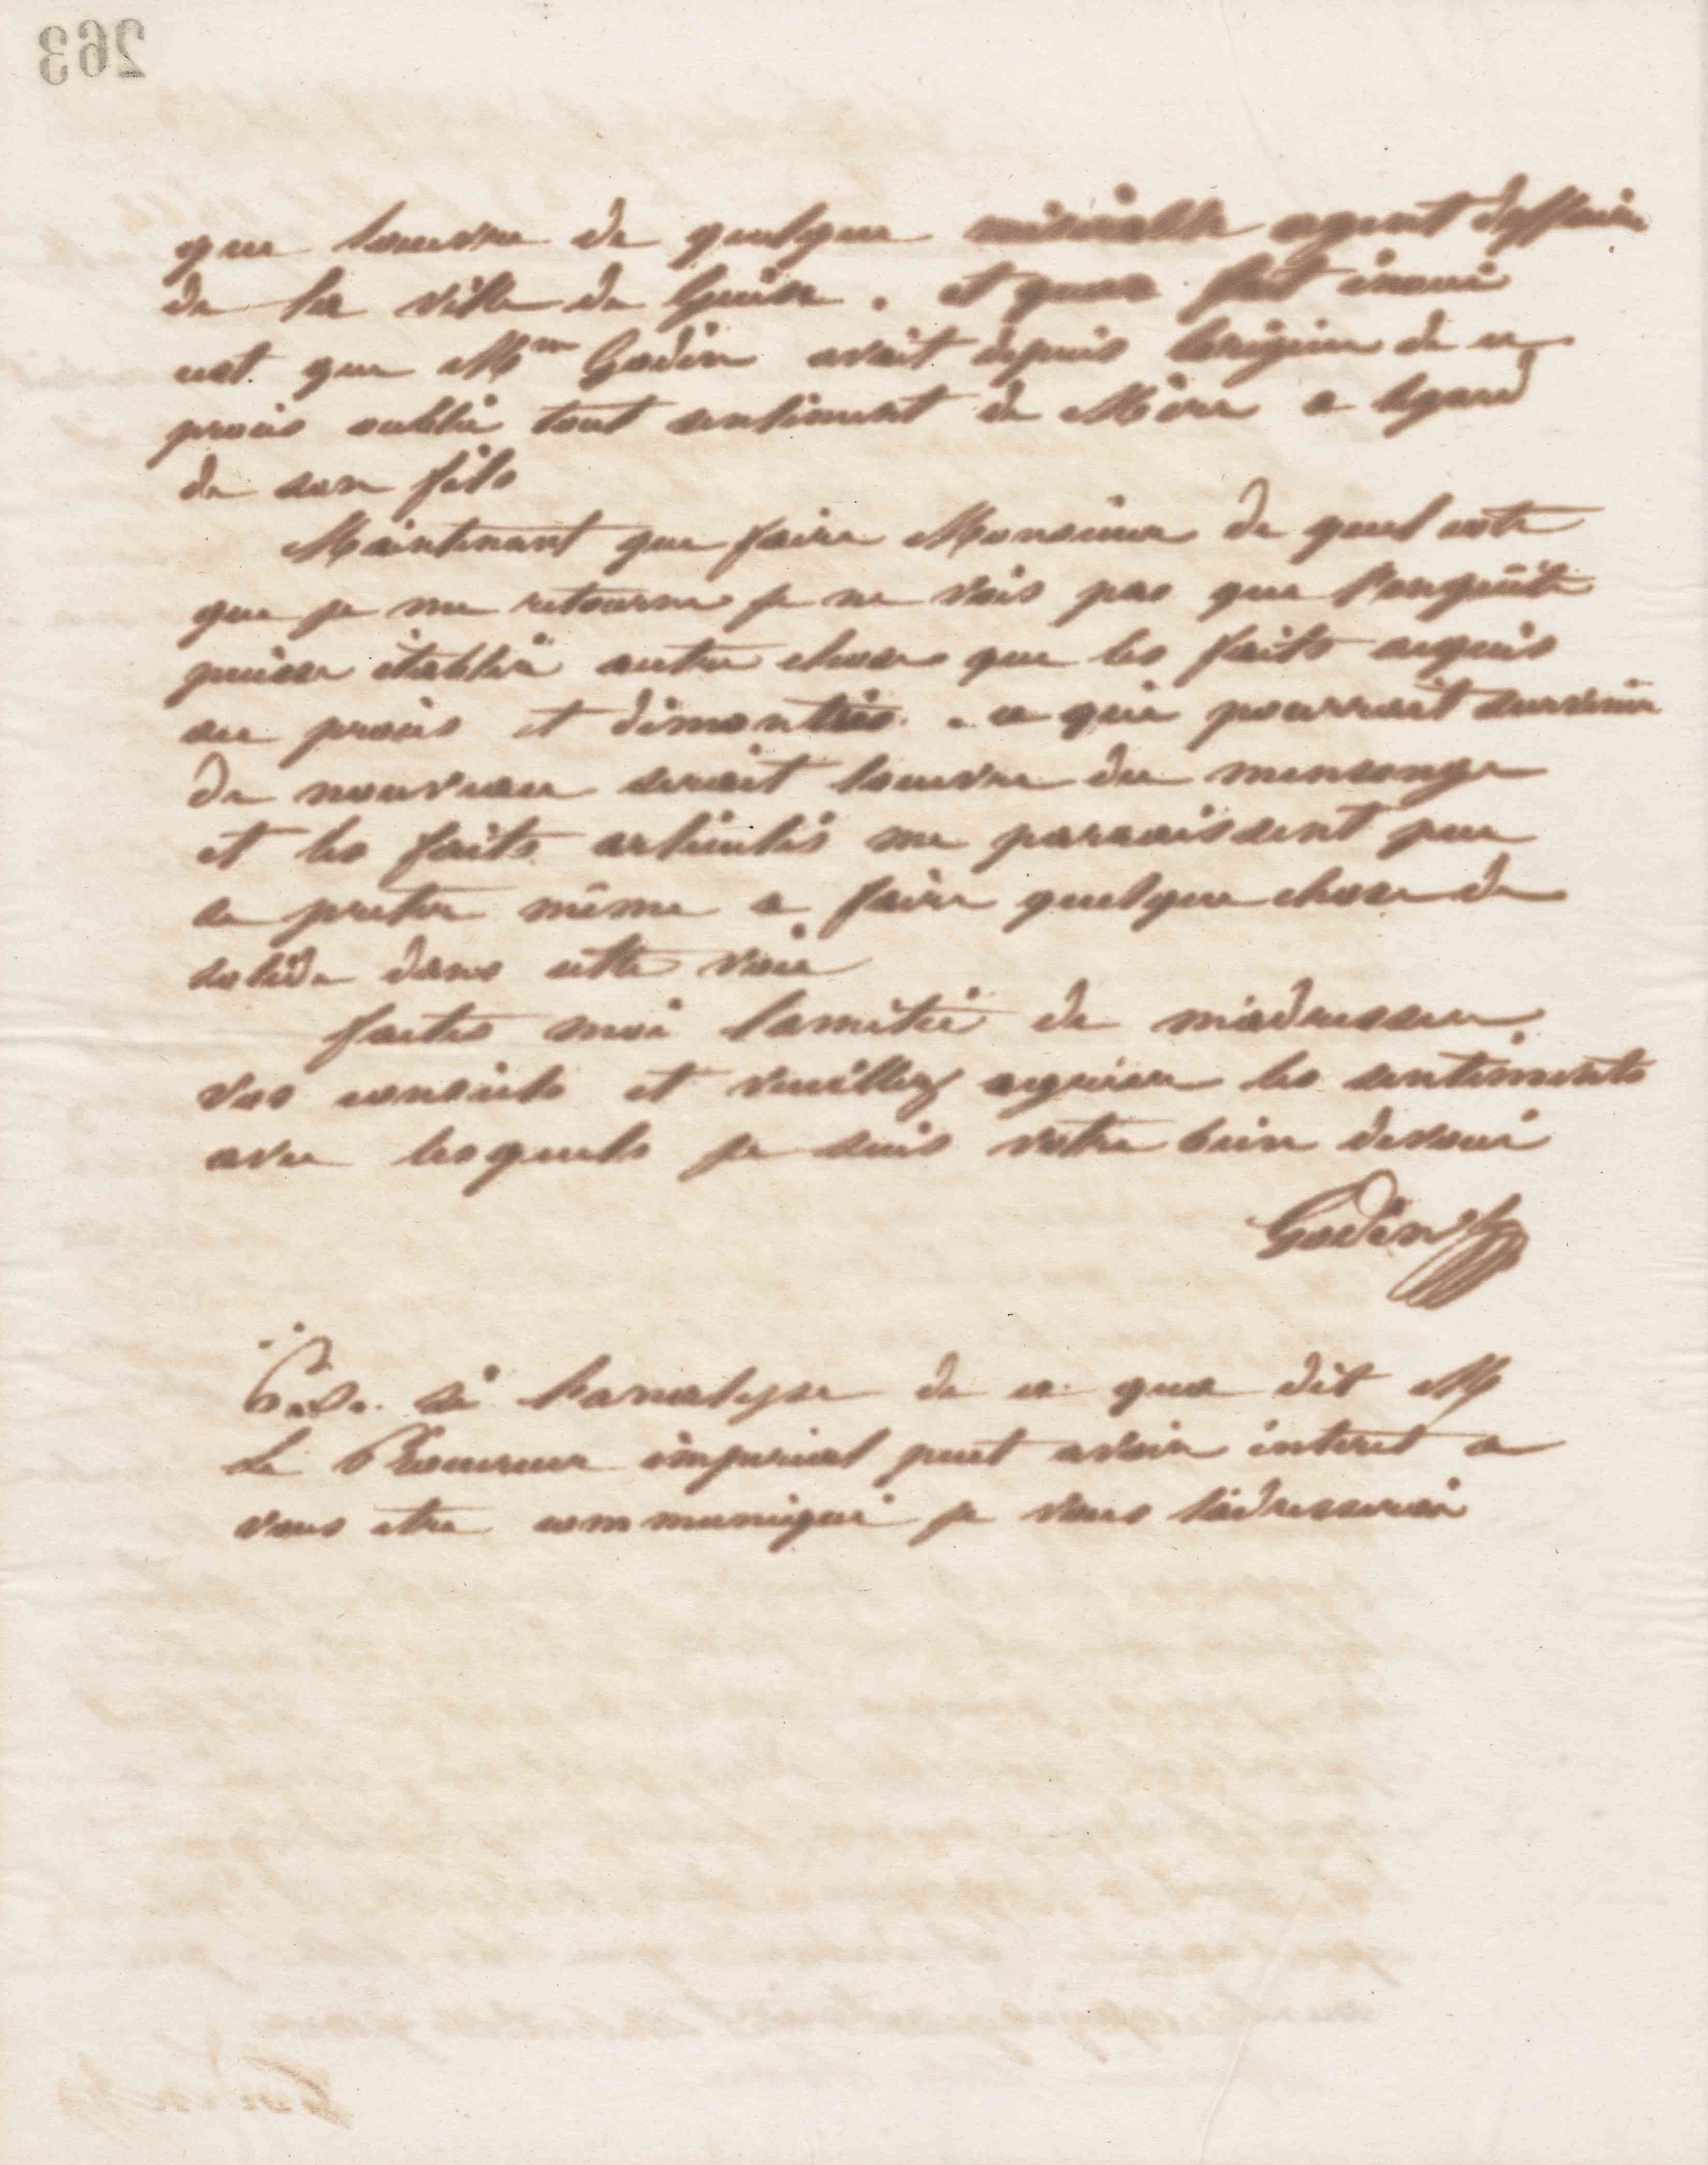 263
que loeuvre de quelque misérable agent daffaire
de la ville de Guise. et fait inoui
cest que Mme Godin avait depuis lorigine de ce
procès oublié tout sentiment de Mère a légard
de son fils
Maintenant que faire Monsieur de quel coté
que je me retourne je ne vois pas que l'enquête
puisse établir autre chose que les faits acquis
au procès et démontrés. ce qui pourrait survenir
de nouveau serait loeuvre du mensonge
et les faits articulés me paraissent peu
se preter même a faire quelque chose de
solide dans cette voie
faites moi lamitié de m'adresser
vos conseils et veuillez agréer les sentiments
avec lesquels je suis votre bien dévoué
Godin
P.S. si l'analyse de ce que dit M
Le Procureur impérial peut avoir intéret a
vous etre communiqué je vous l'adresserai